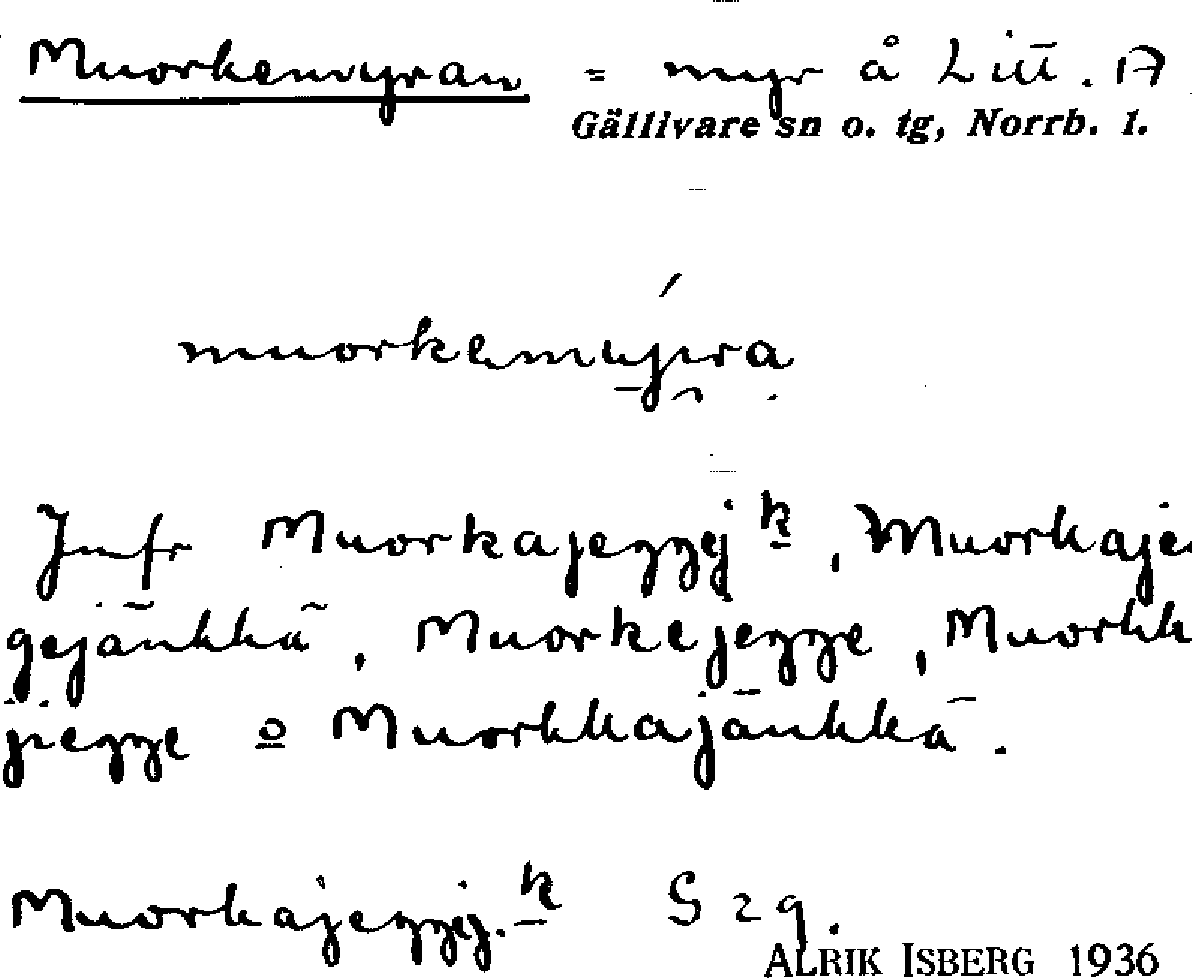 Muorkemyran = myr å Litt. A
Gällivare sn o. tg, Norrb. l.
Jmfr Muorkajeggej k, Muorkaje
gejänkkä, Muorkejegge, Muorkk
jiegge o Muorkkajänkkä.
Muorkajeggej. k S 29.
ALRIK ISBERG 1936